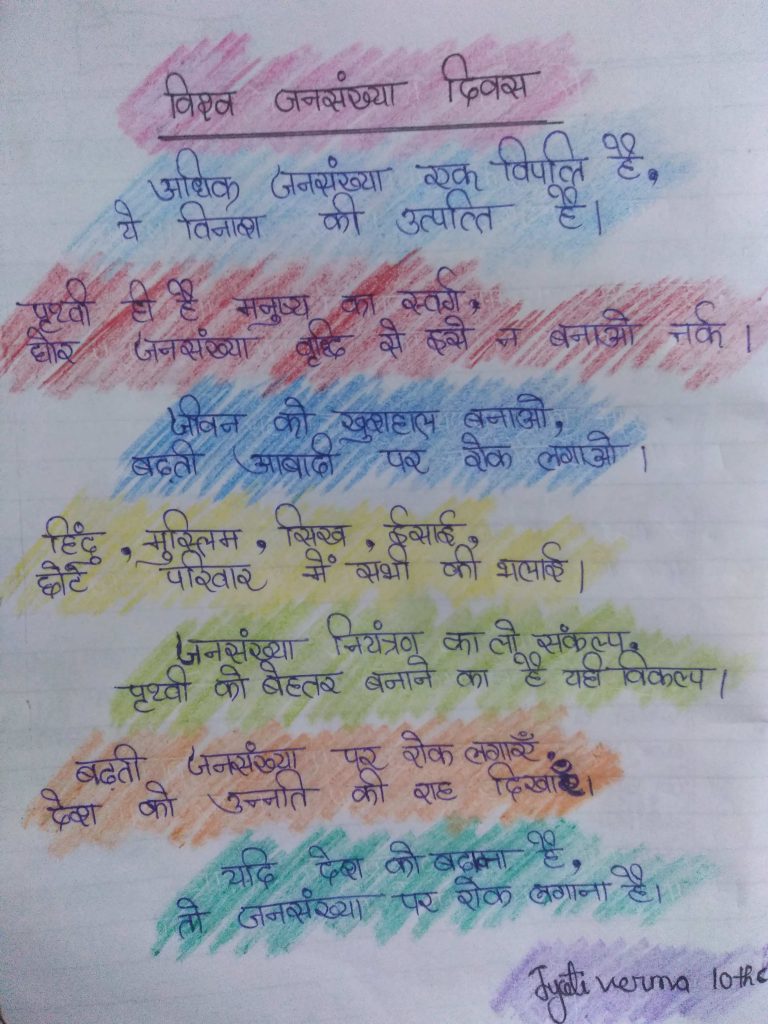 विश्व जनसंख्या दिवस
अधिक जनसंख्या एक विपत्ति है,
ये विनाश की उत्पत्ति है।
पृथ्वी ही है मनुष्य का स्वर्ग,
घोर जनसंख्या वृद्धि से इसे न बनाओ नर्क।
जीवन को खुशहाल बनाओ,
बढ़ती आबादी पर रोक लगाओ।
हिंदू, मुस्लिम, सिख, ईसाई,
छोटे परिवार में सभी की भलाई।
जनसंख्या नियंत्रण का लो संकल्प,
पृथ्वी को बेहतर बनाने का है यही विकल्प।
बढ़ती जनसंख्या पर रोक लगाएँ,
देश को उन्नति की राह दिखाएँ।
यदि देश को बढ़ाना है,
तो जनसंख्या पर रोक लगाना है।
Jyoti verma 10th c